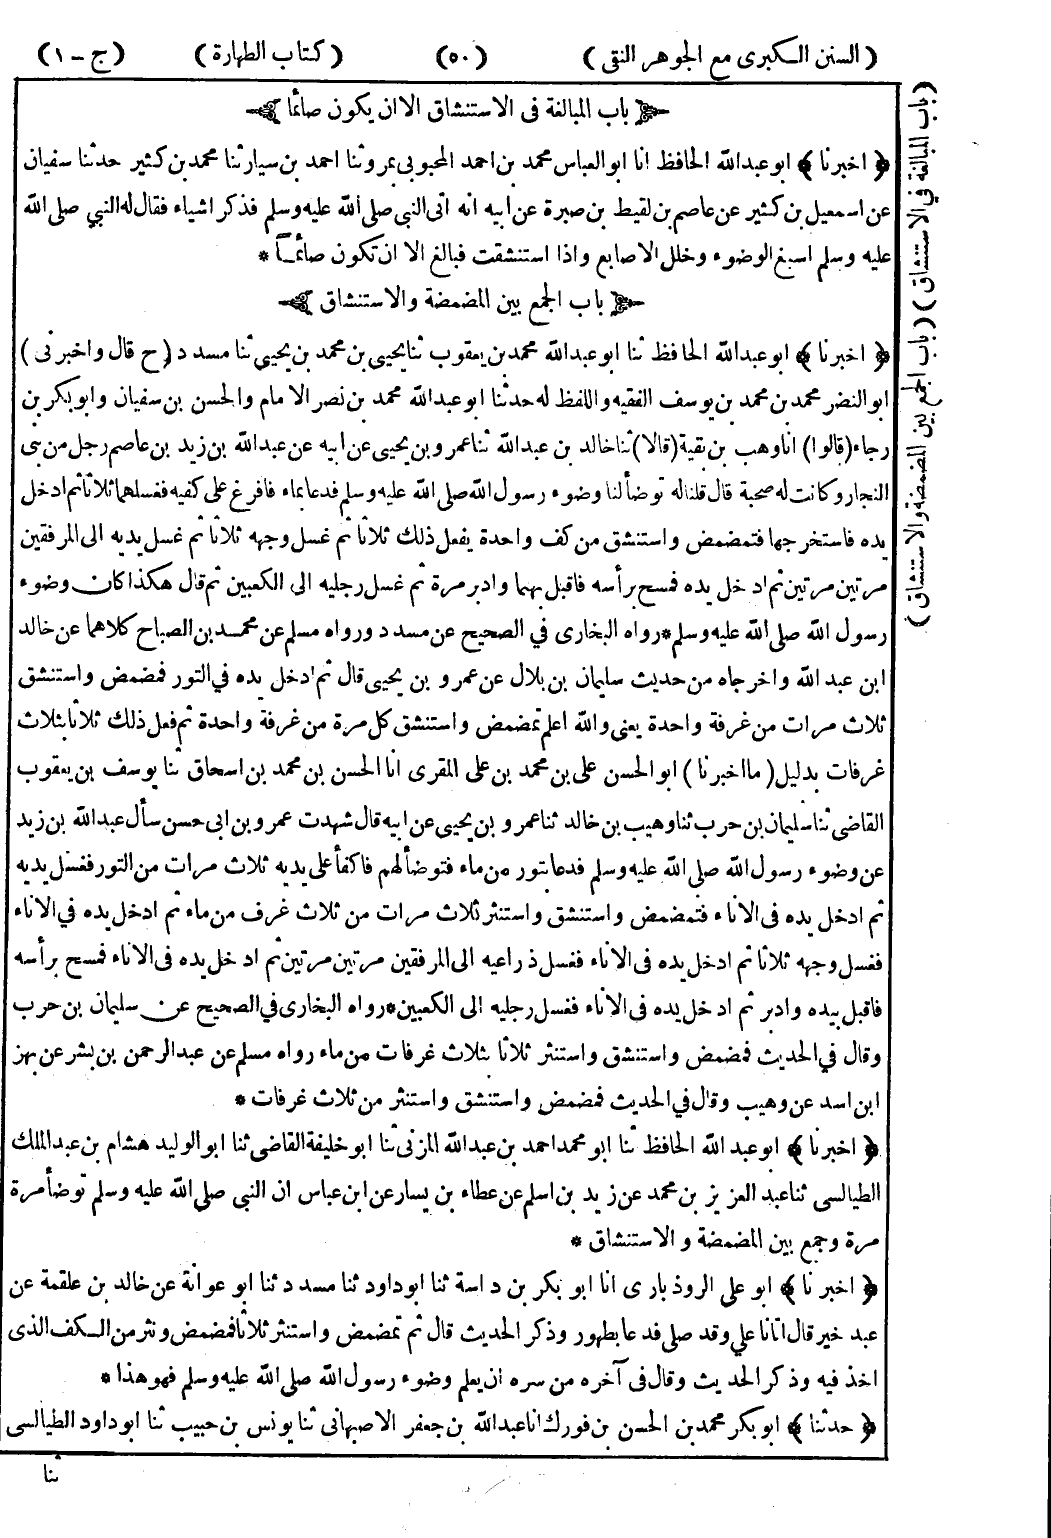 (السنن الكبرى مع الجوهر النقى) (٥٠) (كتاب الطهارة) (ج - ١)
باب المبالغة فى الاستنشاق الا ان يكون صائما
﴿ اخبرنا ﴾ ابو عبد الله الحافظ انا ابو العباس محمد بن احمد المحبوبى بمرو ثنا احمد بن سيار ثنا محمد بن كثير حدثنا سفيان
عن اسمعيل بن كثير عن عاصم بن لقيط بن صبرة عن ابيه انه اتى النبى صلى الله عليه وسلم فذكر اشياء فقال له النبى صلى الله
عليه وسلم اسبغ الوضوء وخلل الاصابع واذا استنشقت فبالغ الا ان تكون صائمـاً *
باب الجمع بين المضمضة والاستنشاق
﴿ اخبرنا ﴾ ابو عبد الله الحافظ ثنا ابو عبد الله محمد بن يعقوب ثنا يحيى بن محمد بن يحيى ثنا مسدد (ح قال واخبرنى)
ابو النضر محمد بن محمد بن يوسف الفقيه واللفظ له حدثنا ابو عبد الله محمد بن نصر الامام والحسن بن سفيان وابو بكر بن
رجاء (قالوا) انا وهب بن بقية (قالا) ثنا خالد بن عبد الله ثنا عمرو بن يحيى عن ابيه عن عبد الله بن زيد بن عاصم رجل من بنى
النجار وكانت له صحبة قال قلنا له توضأ لنا وضوء رسول الله صلى الله عليه وسلم فدعا بماء فافرغ على كفيه فغسلهما ثلاثا ثم ادخل
يده فاستخرجها فتمضمض واستنشق من كف واحدة يفعل ذلك ثلاثا ثم غسل وجهه ثلاثا ثم غسل يديه الى المرفقين
مرتين مرتين ثم ادخل يده فمسح برأسه فاقبل بهما وادبر مرة ثم غسل رجليه الى الكعبين ثم قال هكذا كان وضوء
رسول الله صلى الله عليه وسلم * رواه البخارى في الصحيح عن مسدد ورواه مسلم عن محمد بن الصباح كلاهما عن خالد
ابن عبد الله واخرجاه من حديث سليمان بن بلال عن عمرو بن يحيى قال ثم ادخل يده في التور فمضمض واستنشق
ثلاث مرات من غرفة واحدة يعنى والله اعلم تمضمض واستنشق كل مرة من غرفة واحدة ثم فعل ذلك ثلاثا بثلاث
غرفات بدليل (ما اخبرنا) ابو الحسن على بن محمد بن على المقرى انا الحسن بن محمد بن اسحاق ثنا يوسف بن يعقوب
القاضى ثنا سليمان بن حرب ثنا وهيب بن خالد ثنا عمرو بن يحيى عن ابيه قال شهدت عمرو بن ابى حسن سأل عبد الله بن زيد
عن وضوء رسول الله صلى الله عليه وسلم فدعا بتور من ماء فتوضأ لهم فاكفأ على يديه ثلاث مرات من التور فغسل يديه
ثم ادخل يده فى الاناء فتمضمض واستنشق واستنثر ثلاث مرات من ثلاث غرف من ماء ثم ادخل يده في الاناء
فغسل وجهه ثلاثا ثم ادخل يده فى الاناء فغسل ذراعيه الى المرفقين مرتين مرتين ثم ادخل يده فى الاناء فمسح برأسه
فاقبل بيده وادبر ثم ادخل يده فى الاناء فغسل رجليه الى الكعبين * رواه البخارى في الصحيح عن سليمان بن حرب
وقال في الحديث فمضمض واستنشق واستنثر ثلاثا بثلاث غرفات من ماء رواه مسلم عن عبد الرحمن بن بشر عن بهز
ابن اسد عن وهيب وقال في الحديث فمضمض واستنشق واستنثر من ثلاث غرفات *
﴿ اخبرنا ﴾ ابو عبد الله الحافظ ثنا ابو محمد احمد بن عبد الله المزنى ثنا ابو خليفة القاضى ثنا ابو الوليد هشام بن عبد الملك
الطيالسى ثنا عبد العزيز بن محمد عن زيد بن اسلم عن عطاء بن يسار عن ابن عباس ان النبى صلى الله عليه وسلم توضأ مرة
مرة وجمع بين المضمضة والاستنشاق *
﴿ اخبرنا ﴾ ابو على الروذبارى انا ابو بكر بن داسة ثنا ابو داود ثنا مسدد ثنا ابو عوانة عن خالد بن علقمة عن
عبد خير قال اتانا على وقد صلى فدعا بطهور وذكر الحديث قال ثم تمضمض واستنثر ثلاثا فمضمض ونثر من الكف الذى
اخذ فيه وذكر الحديث وقال فى آخره من سره ان يعلم وضوء رسول الله صلى الله عليه وسلم فهو هذا *
﴿ حدثنا ﴾ ابو بكر محمد بن الحسن بن فورك انا عبد الله بن جعفر الاصبهانى ثنا يونس بن حبيب ثنا ابو داود الطيالسى
ثنا
(باب المبالغة في الاستنشاق) (باب الجمع بين المضمضة والاستنشاق)